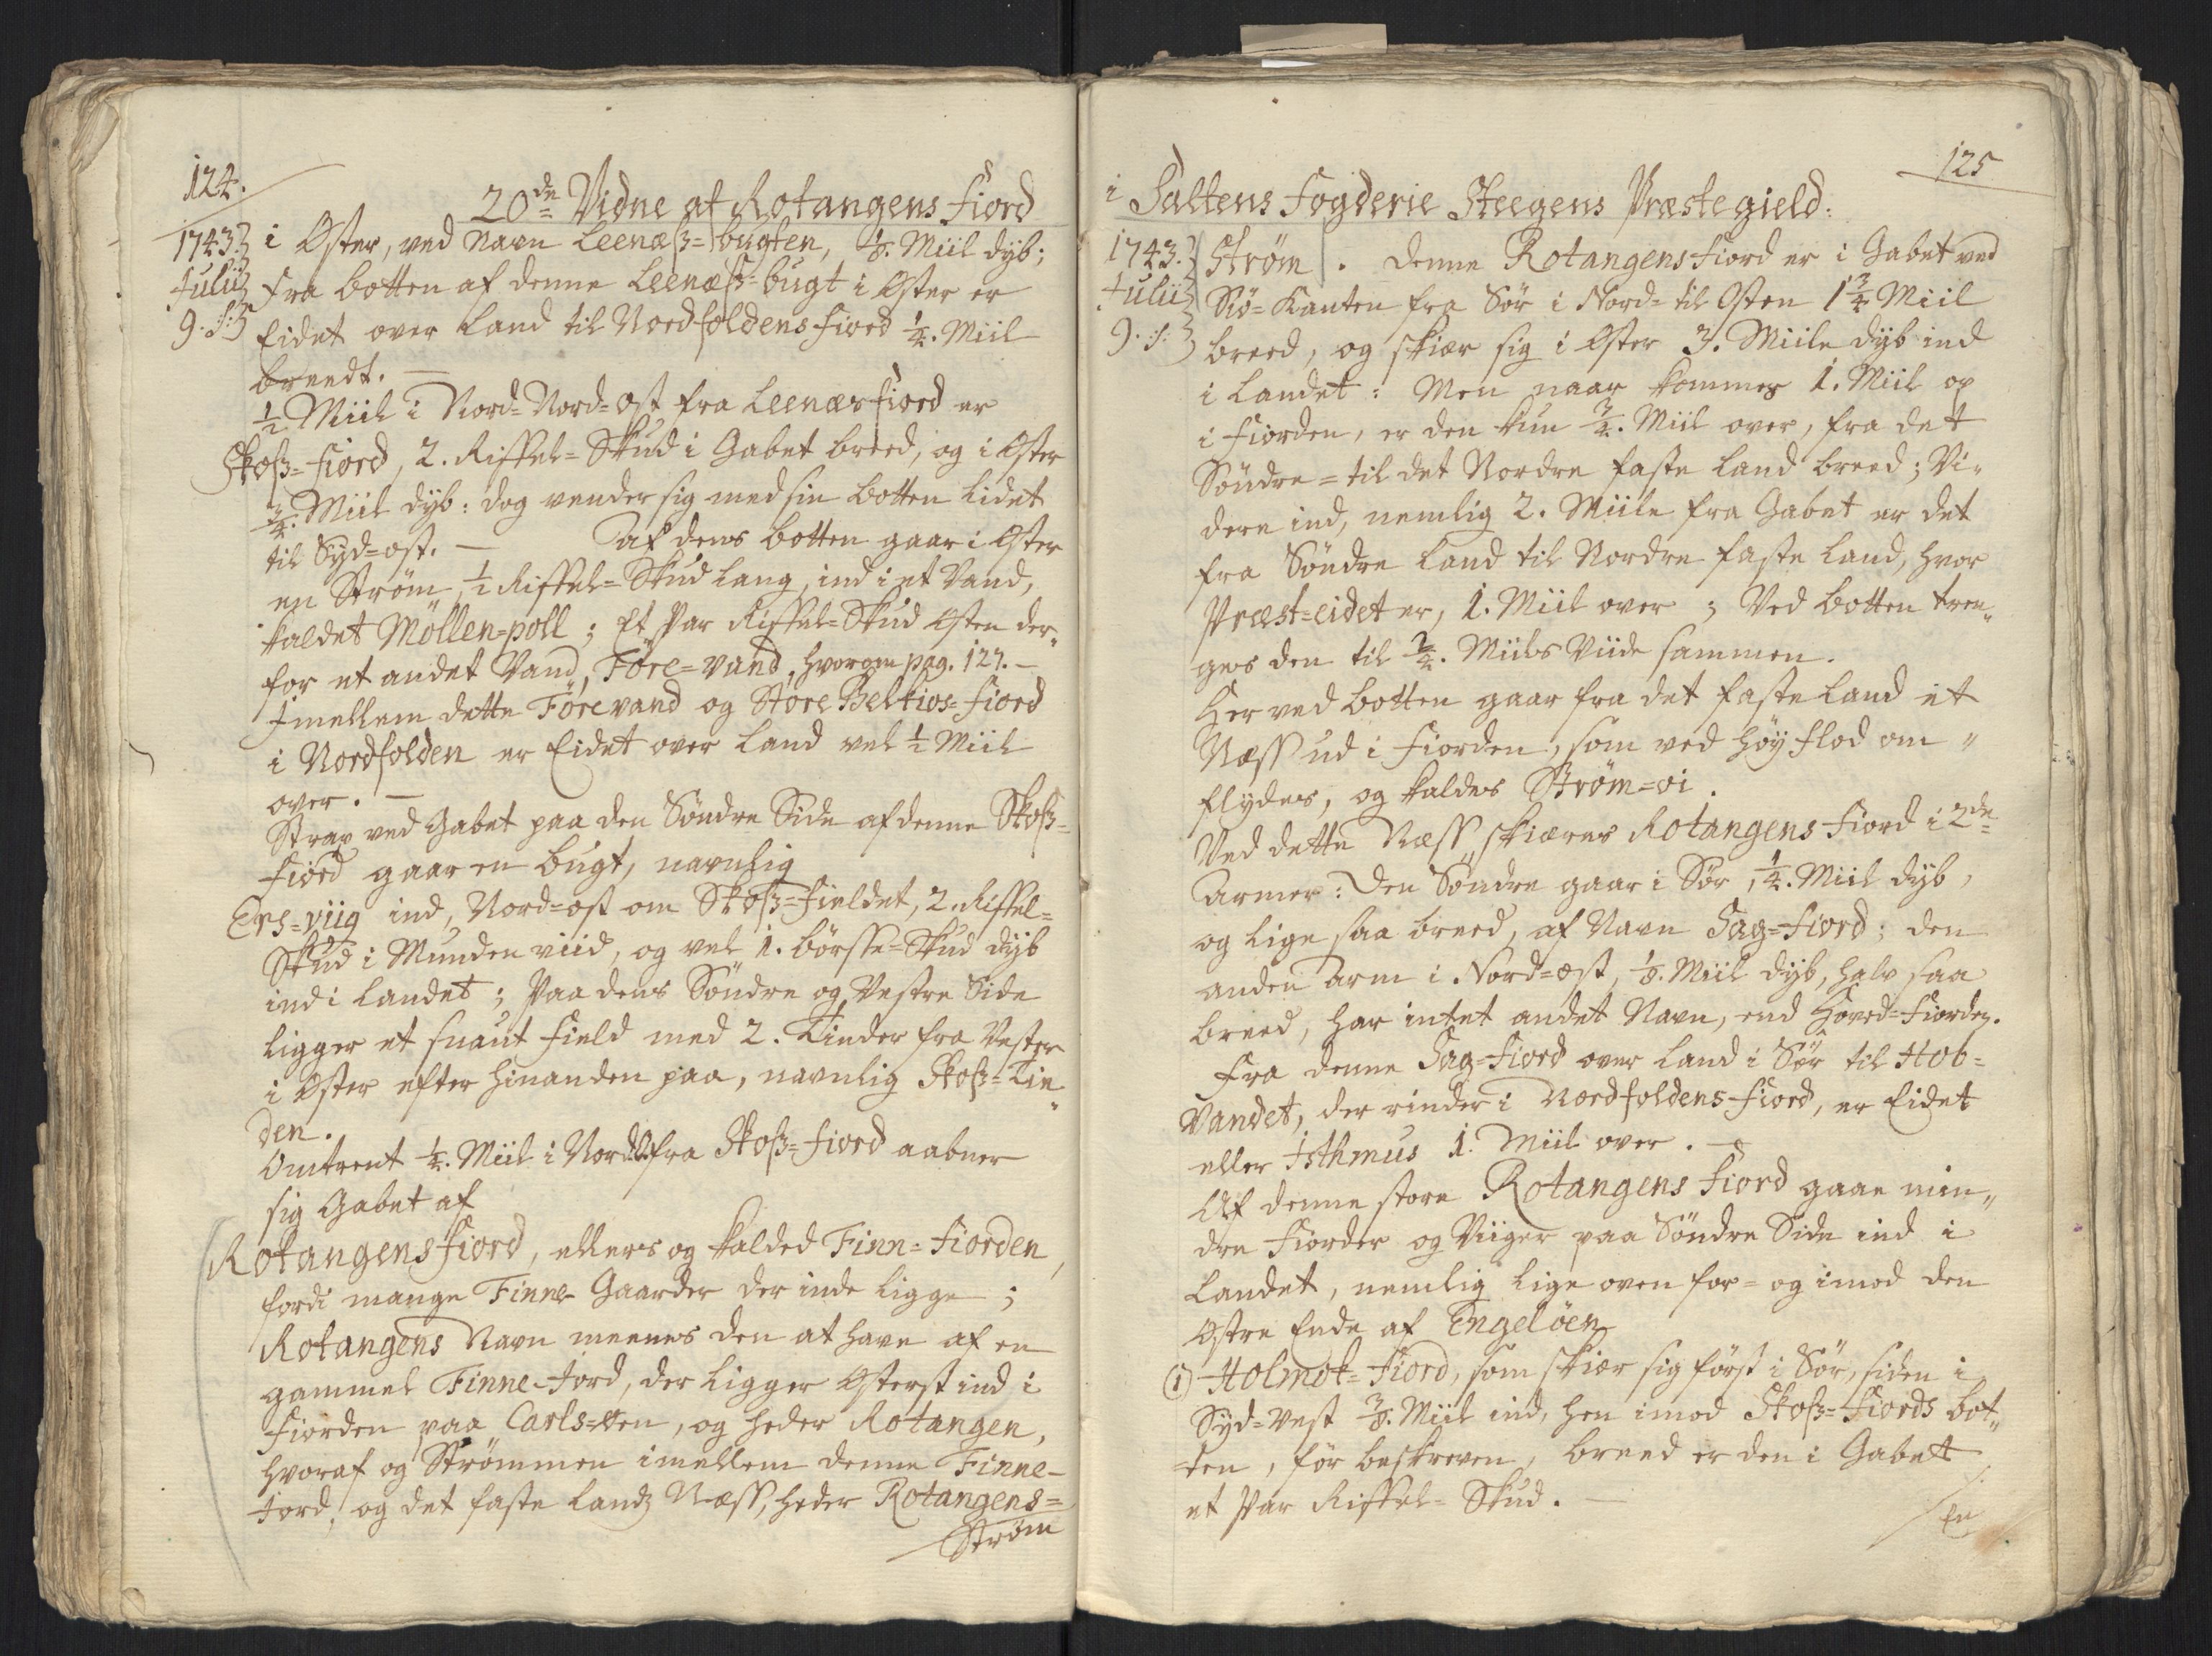 124.
20de Vidne af Rotangens Fiord
1743.
Julii
9. s:
i Øster, ved Navn Leenæß=bugten, 1/8. Miil dyb;
Fra botten af denne Leenæß=bugt i Øster er
Eidet over Land til Nordfoldens Fiord 1/4. Miil
breedt. —
1/2 Miil i Nord=Nord=Ost fra Leenæs Fiord er
Skoß=Fiord, 2. Riffel=Skud i Gabet breed, og i Øster
3/4. Miil dyb: dog vender sig med sin botten lidet
til Syd=ost. — Af dens botten gaar i Øster
en Strøm 1/2 Riffel=Skud lang, ind i et Vand,
kaldet Møllen=poll; Et Par Riffel=Skud Østen der„
for et andet Vand, Føre=vand, hvorom pag. 127. —
Imellem dette Førevand og Store Bektios=Fiord
i Nordfolden er Eidet over Land vel 1/2 Miil
over. —
Strax ved Gabet paa den Søndre Side af denne Skoß=
Fiord gaar en Bugt, navnlig
Ers=viig ind, Nord=ost om Skoß=Fieldet, 2. Riffel=
Skud i Munden viid, og vel 1. børsse=Skud dyb
ind i Landet; Paa dens Søndre og Vestre Side
ligger et snaut Field med 2. Tinder fra Vester
i Øster efter hinanden paa, navnlig Skoß=Tin„
den.
Omtrent 1/4. Miil i Nord fra Skoß=Fiord aabner
sig Gabet af
Rotangens Fiord, ellers og kalded Finn=Fiorden,
fordi mange Finne Gaarder der inde ligge;
Rotangens Navn meenes den at have af en
gammel Finne-Jord, der ligger Østerst ind i
Fiorden paa Carls=øen, og heder Rotangen,
hvoraf og Strømmen imellem denne Finne-
Jord, og det faste Landz Næss, heder Rotangens=
Strøm
125
i Saltens Fogderie Steegens Præstegield:
1743.
Julii
9. s:
Strøm. Denne Rotangens Fiord er i Gabet ved
Siø=Kanten fra Sør i Nord= til Osten 1 3/4 Miil
breed, og skiær sig i Øster 3. Miile dyb ind
i Landet: Men naar kommes 1. Miil op
i Fiorden, er den kun 3/4. Miil over, fra det
Søndre= til det Nordre faste Land breed; Vi„
dere ind, nemlig 2. Miile fra Gabet er det
fra Søndre Land til Nordre faste Land, hvor
Præst=eidet er, 1. Miil over; Ved botten tren„
ges den til 3/4. Miils Viide sammen.
Her ved botten gaar fra det faste Land et
Næss ud i Fiorden, som ved høy Flod om„
flydes, og kaldes Strøm=øi.
Ved dette Næss skiæres Rotangens Fiord i 2de
Armer: Den Søndre gaar i Sør, 1/4. Miil dyb,
og lige saa breed, af Navn Sag=Fiord; den
anden Arm i Nord=ost, 1/8. Miil dyb, halv saa
breed, har intet andet Navn, end Hoved=Fiorden.
Fra denne Sag=Fiord over Land i Sør til Hob=
Vandet, der rinder i Nordfoldens Fiord, er Eidet
eller Isthmus 1. Miil over. —
Af denne store Rotangens Fiord gaae min„
dre Fiorder og Viiger paa Søndre Side ind i
Landet, nemlig lige oven for= og imod den
Østre Ende af Engeløen
1) Holmok=Fiord, som skiær sig først i Sør, siden i
Syd=Vest 3/8. Miil ind, hen imod Skoß=Fiords bot„
=ten, før beskreven, breed er den i Gabet
et Par Riffel=Skud. —
En